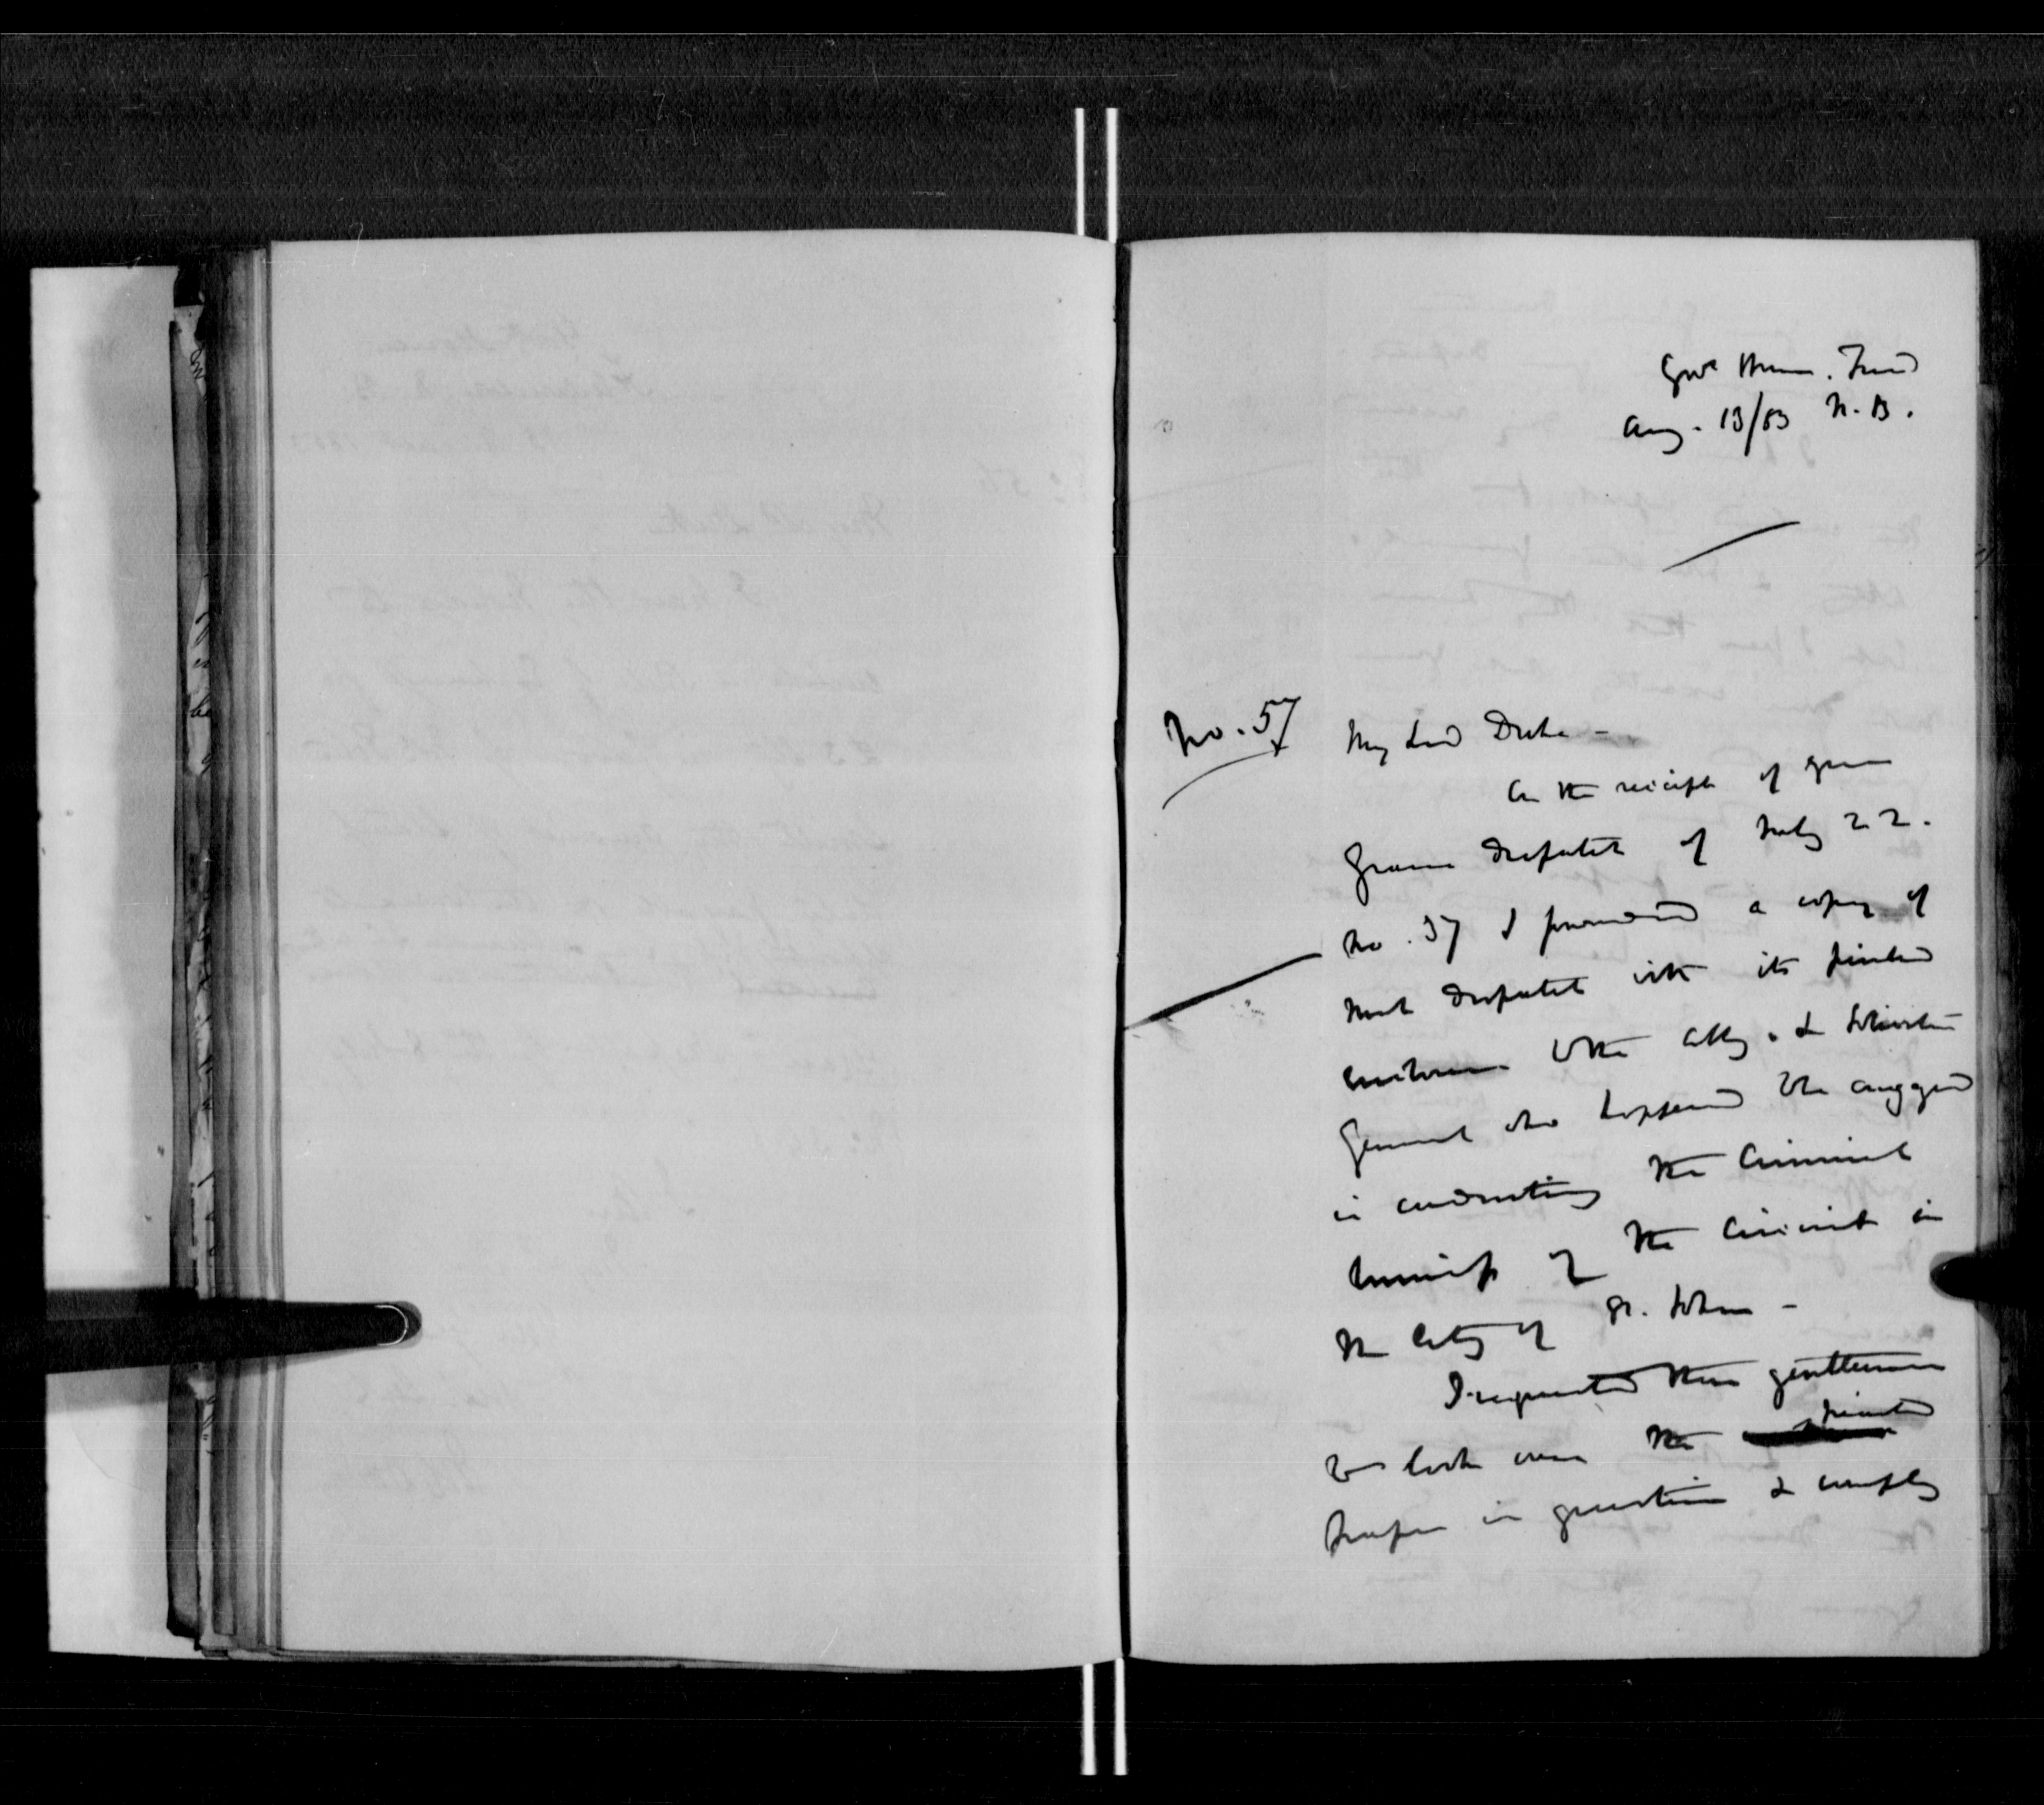 Govt House. Fred
Aug. 13/53 N. B.
No. 57
My Lord Duke -
On the receipt of your
Grace's despatch of July 22.
No. 37 I forwarded a copy of
that despatch with its printed
enclosure to the Atty. & Solicitor
General who happened to be engaged
in conducting the Criminal
business of the Circuit in
the City of St. John -
I requested these gentlemen
to look over the printed
paper in question & comply